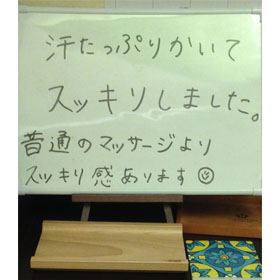 汗たっぷりかいて
スッキリしました。
普通のマッサージより
スッキリ感あります☺